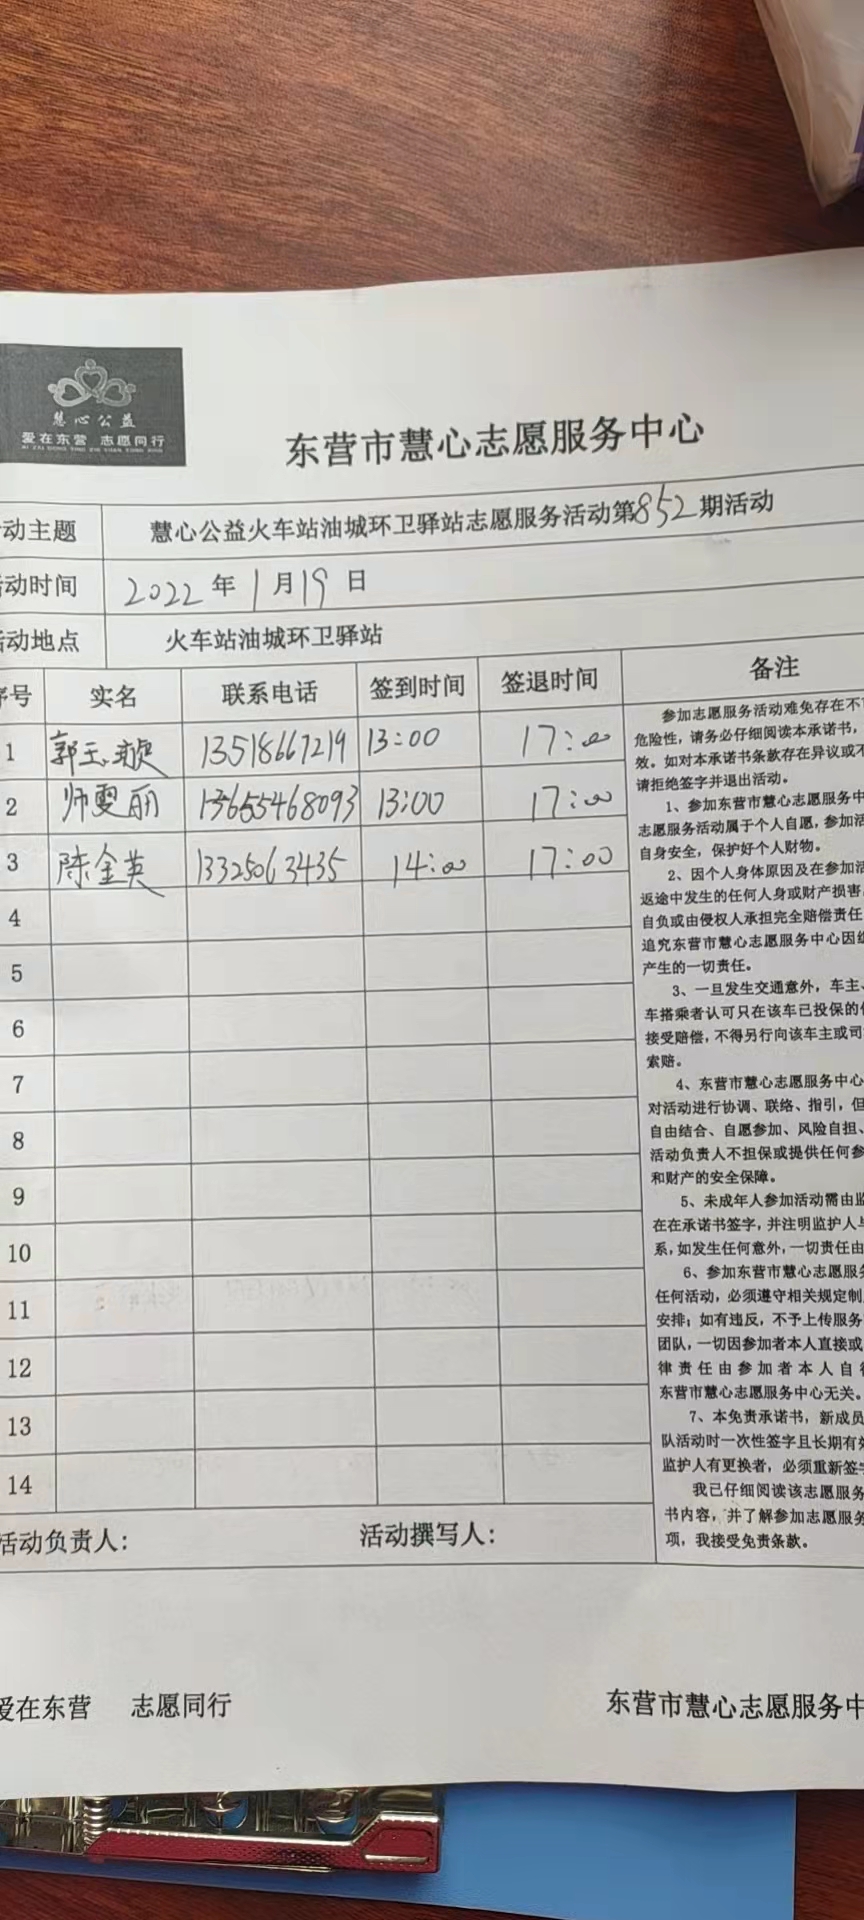 慧心公益
爱在东营 志愿同行
AI ZAI DONG YING ZHI YUAN TONG XING
东营市慧心志愿服务中心
动主题 慧心公益火车站油城环卫驿站志愿服务活动第852期活动
活动时间 2022年1月19日
活动地点 火车站油城环卫驿站
序号 实名 联系电话 签到时间 签退时间 备注
1 郭玉 13518667219 13:00 17:00
2 师雯丽 13655468093 13:00 17:00
3 陈金英 13325063435 14:00 17:00
4
5
6
7
8
9
10
11
12
13
14
参加志愿服务活动难免存在不可
危险性，请务必仔细阅读本承诺书，
效。如对本承诺书条款存在异议或不
请拒绝签字并退出活动。
1、参加东营市慧心志愿服务中
志愿服务活动属于个人自愿，参加活
自身安全，保护好个人财物。
2、因个人身体原因及在参加活
返途中发生的任何人身或财产损害
自负或由侵权人承担完全赔偿责任
追究东营市慧心志愿服务中心因组
产生的一切责任。
3、一旦发生交通意外，车主、
车搭乘者认可只在该车已投保的
接受赔偿，不得另行向该车主或司
索赔。
4、东营市慧心志愿服务中心
对活动进行协调、联络、指引，但
自由结合、自愿参加、风险自担、
活动负责人不担保或提供任何参
和财产的安全保障。
5、未成年人参加活动需由监
在在承诺书签字，并注明监护人与
系，如发生任何意外，一切责任由
6、参加东营市慧心志愿服务
任何活动，必须遵守相关规定制
安排；如有违反，不予上传服务
团队，一切因参加者本人直接或
律责任由参加者本人自行
东营市慧心志愿服务中心无关。
7、本免责承诺书，新成员
队活动时一次性签字且长期有效
监护人有更换者，必须重新签字
我已仔细阅读该志愿服务
书内容，并了解参加志愿服务
项，我接受免责条款。
活动负责人： 活动撰写人：
爱在东营 志愿同行 东营市慧心志愿服务中